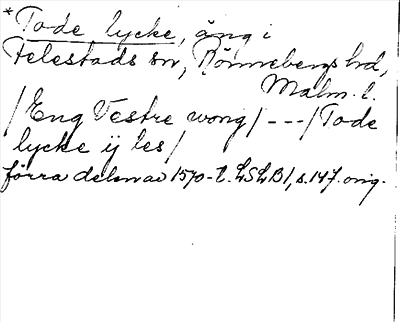 *Tode lycke, äng i
Felestads sn, Rönnebergs hd,
Malm. l.
/Eng Vestre wong/---/Tode
lycke ij les/
förra delen av 1570-t. LSLB1, s.147. orig.